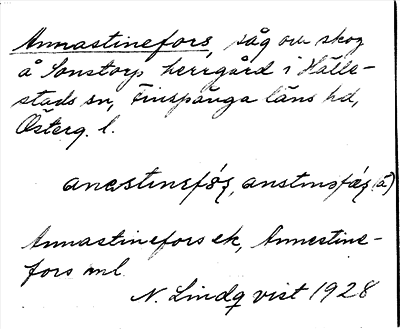 Annastinefors, såg ou skog
å Sonstorps herrgård i Hälle-
stads sn, Finspånga läns hd,
Österg. l.
anastinsfǫ́ʂ, anstinsfǽʂ (å)
Annastinefors ek, Annestine-
fors ml.
N. Lindqvist 1928